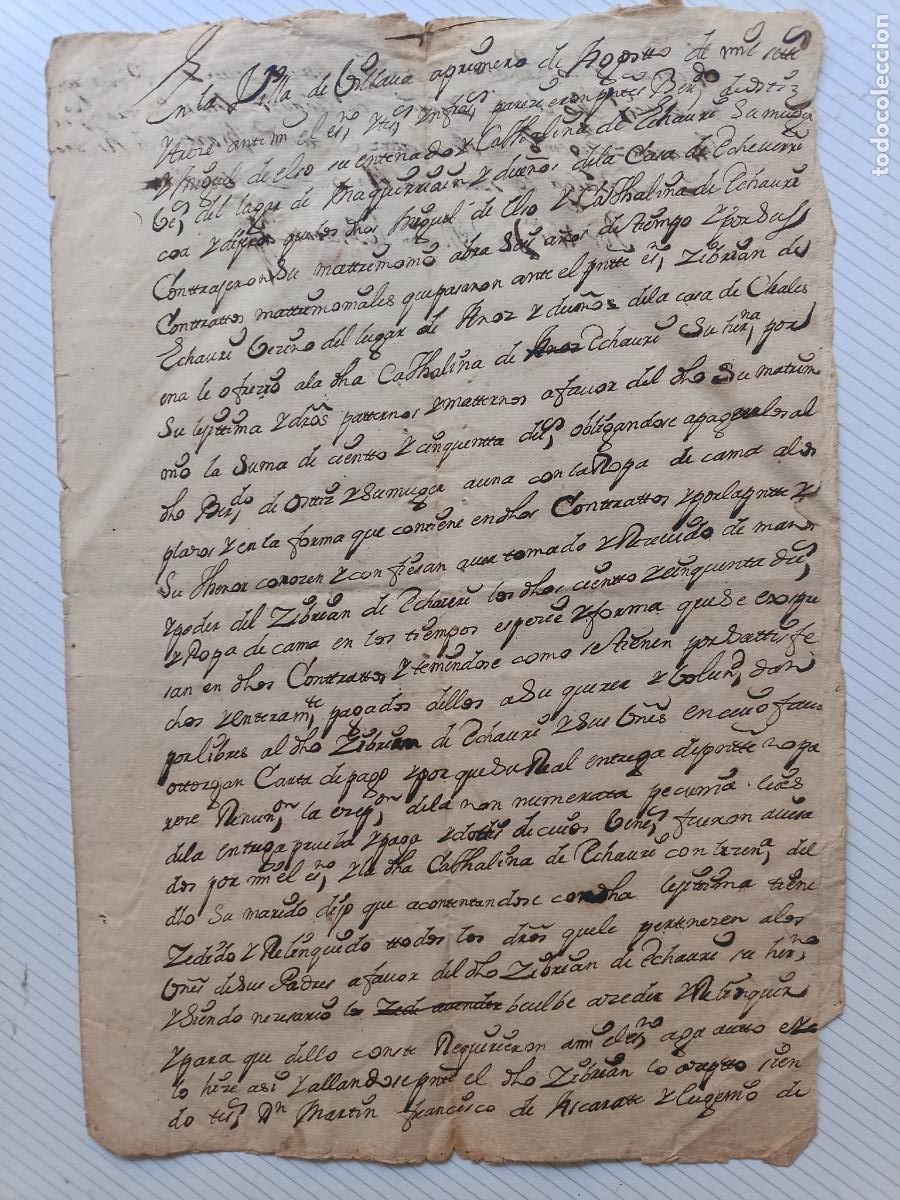 En la Villa de Villava a primero de Agosto de mil sette
y trece ante mi el es.no y tes. infras. parecieron pntes Ber.do de ostiz
y Miguel de elso su entenado y Cathalina de Echauri Su muger
Vs. del lugar de Maquirriain y dueños de la Casa de Echeverri
coa y dixeron que los dhos Miguel de Elso y Cathalina de Echauri
Contraxeron Su mattrimonio abra Seis años de tiempo y por Sus
Contrattos mattrimoniales que pasaron ante el pntte es.no Zibrian de
Echauri Vezino del lugar de Anoz y dueño de la casa de Chales
ena le ofrezio a la dha Cathalina de Echauri Su her.na por
Su lejitima y dros patternos y matternos a favor del dho Su matrim
onio la Suma de ciento y cinquentta du.s obligandose a pagarles al
dho Ber.do de Ostiz y Su muger a una con la Ropa de cama a los
plazos y en la forma que contiene en dhos Contrattos y por la pntte y
Su thenor conozen y confiesan aver tomado y Recivido de mano
y poder del Zibrian de Echauri los dhos ciento y cinquenta du.s
y Ropa de cama en los tiempos especie y forma que Se expre
san en dhos Contrattos y teniendose como se tienen por Sattisfe
chos y enteram.te pagados dellos a Su querer y Volun.d dan
por libres al dho Zibrian de Echauri y Sus Vnes en cuio favor
ottorgan Cartta de pago y por que Su Real entrega de pntte no pa
reze Renun.on la exep.on de la non numerata pecunia leies
de la entrega prueba y paga y de cuios Vene.s fueron avisa
dos por mi el es.no y la dha Cathalina de Echauri con lizen.a del
dho Su marido dijo que acontentandose con dha lejitima tiene
Zedido y Relinquido ttodos los dros que le pertenezen a los
Vnes de sus Padres a favor del dho Zibrian de Echauri su her.no
y Siendo nezesario buelbe a zeder y Relinquir
y para que dello conste Requirieron a mi el es.no aga autto e yo
lo hize asi y allandose pntte el dho Zibrian lo azepto sien
do tes. Dn Martin francisco de Ascaratte y Eugenio de
todocoleccion